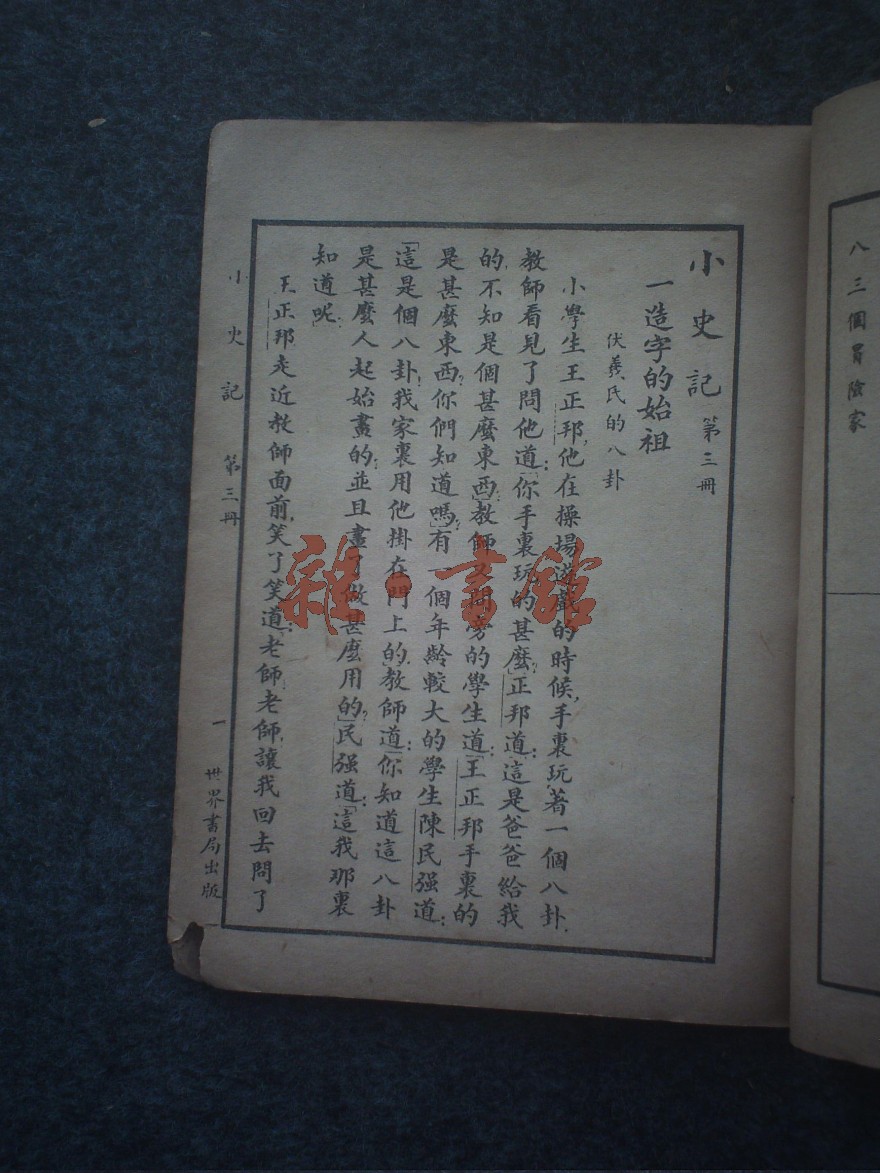 八 三個冒險家
小史記 第三冊
一 造字的始祖
伏羲氏的八卦
小學生王正邦,他在操場遊戲的時候,手裏玩著一個八卦.
教師看見了問他道:「你手裏玩的甚麼?」正邦道:「這是爸爸給我
的,不知是個甚麼東西?」教師又問旁的學生道:「王正邦手裏的
是甚麼東西?你們知道嗎?」有一個年齡較大的學生陳民强道:
「這是個八卦!我家裏用他掛在門上的.」教師道:「你知道這八卦
是甚麼人起始畫的;並且畫了做甚麼用的?」民强道:「這我那裏
知道呢.
王正邦走近教師面前,笑了笑道:「老師,老師,讓我回去問了
小史記 第三冊 一 世界書局出版
雜·書館